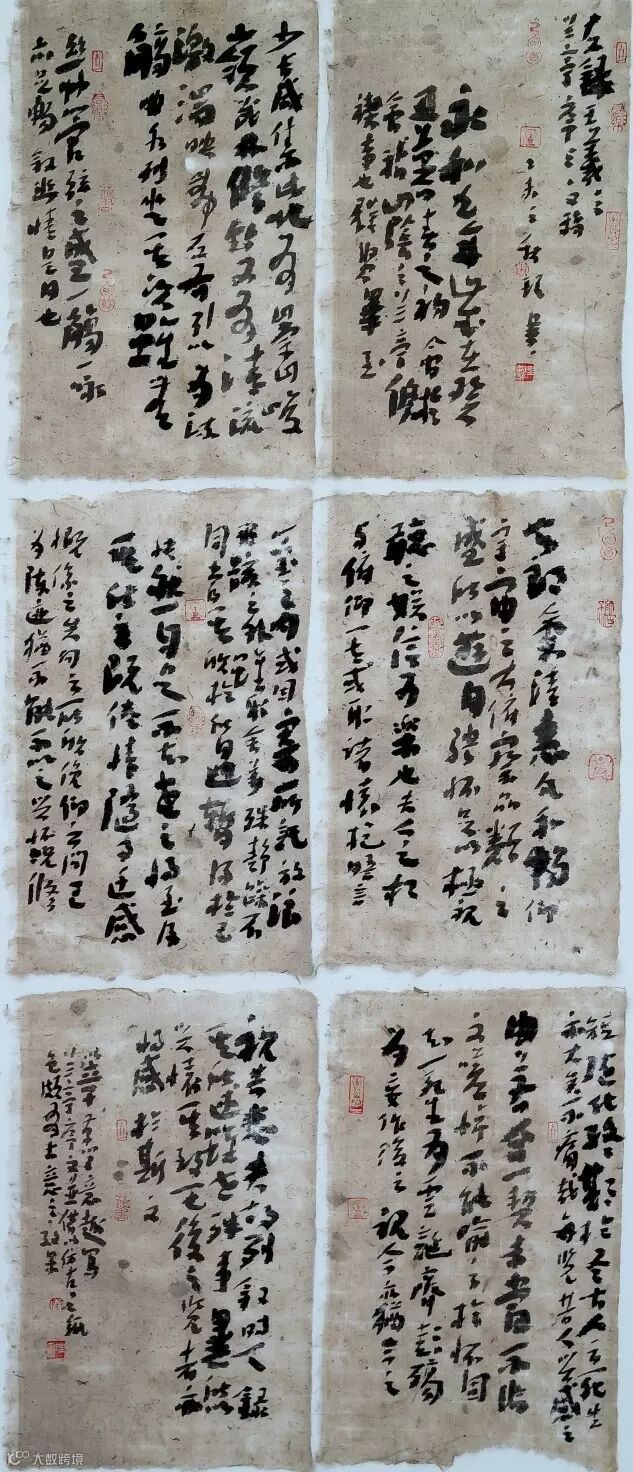 右錄王羲之
蘭亭序之文稿
永和九年歲在癸
丑暮春之初會於
會稽山陰之蘭亭修
禊事也群賢畢至
少長咸集此地有崇山峻
嶺茂林修竹又有清流
激湍映帶左右引以為流
觴曲水列坐其次雖無
絲竹管弦之盛一觴一詠
亦足暢敘幽情是日也
天朗氣清惠風和暢仰
宇宙之大俯察品類之
盛所以遊目騁懷足以極視
聽之娛信可樂也夫人之相
與俯仰一世或取諸懷抱晤言
一室之內或因寄所託放浪
形骸之外雖取舍萬殊靜躁不
同當其欣於所遇暫得於己
快然自足不知老之將至及
其所之既倦情隨事遷感
慨係之矣向之所欣俛仰之間已
為陳迹猶不能不以之興懷況脩
短隨化終期於盡古人云死生
亦大矣豈不痛哉每覽昔人興感之
由若合一契未嘗不臨
文嗟悼不能喻之於懷固
知一死生為虛誕齊彭殤
為妄作後之視今亦猶今之
視昔悲夫故列敘時人錄
其所述雖世殊事異所以
興懷其致一也後之覽者亦
將感於斯文
大数跨境